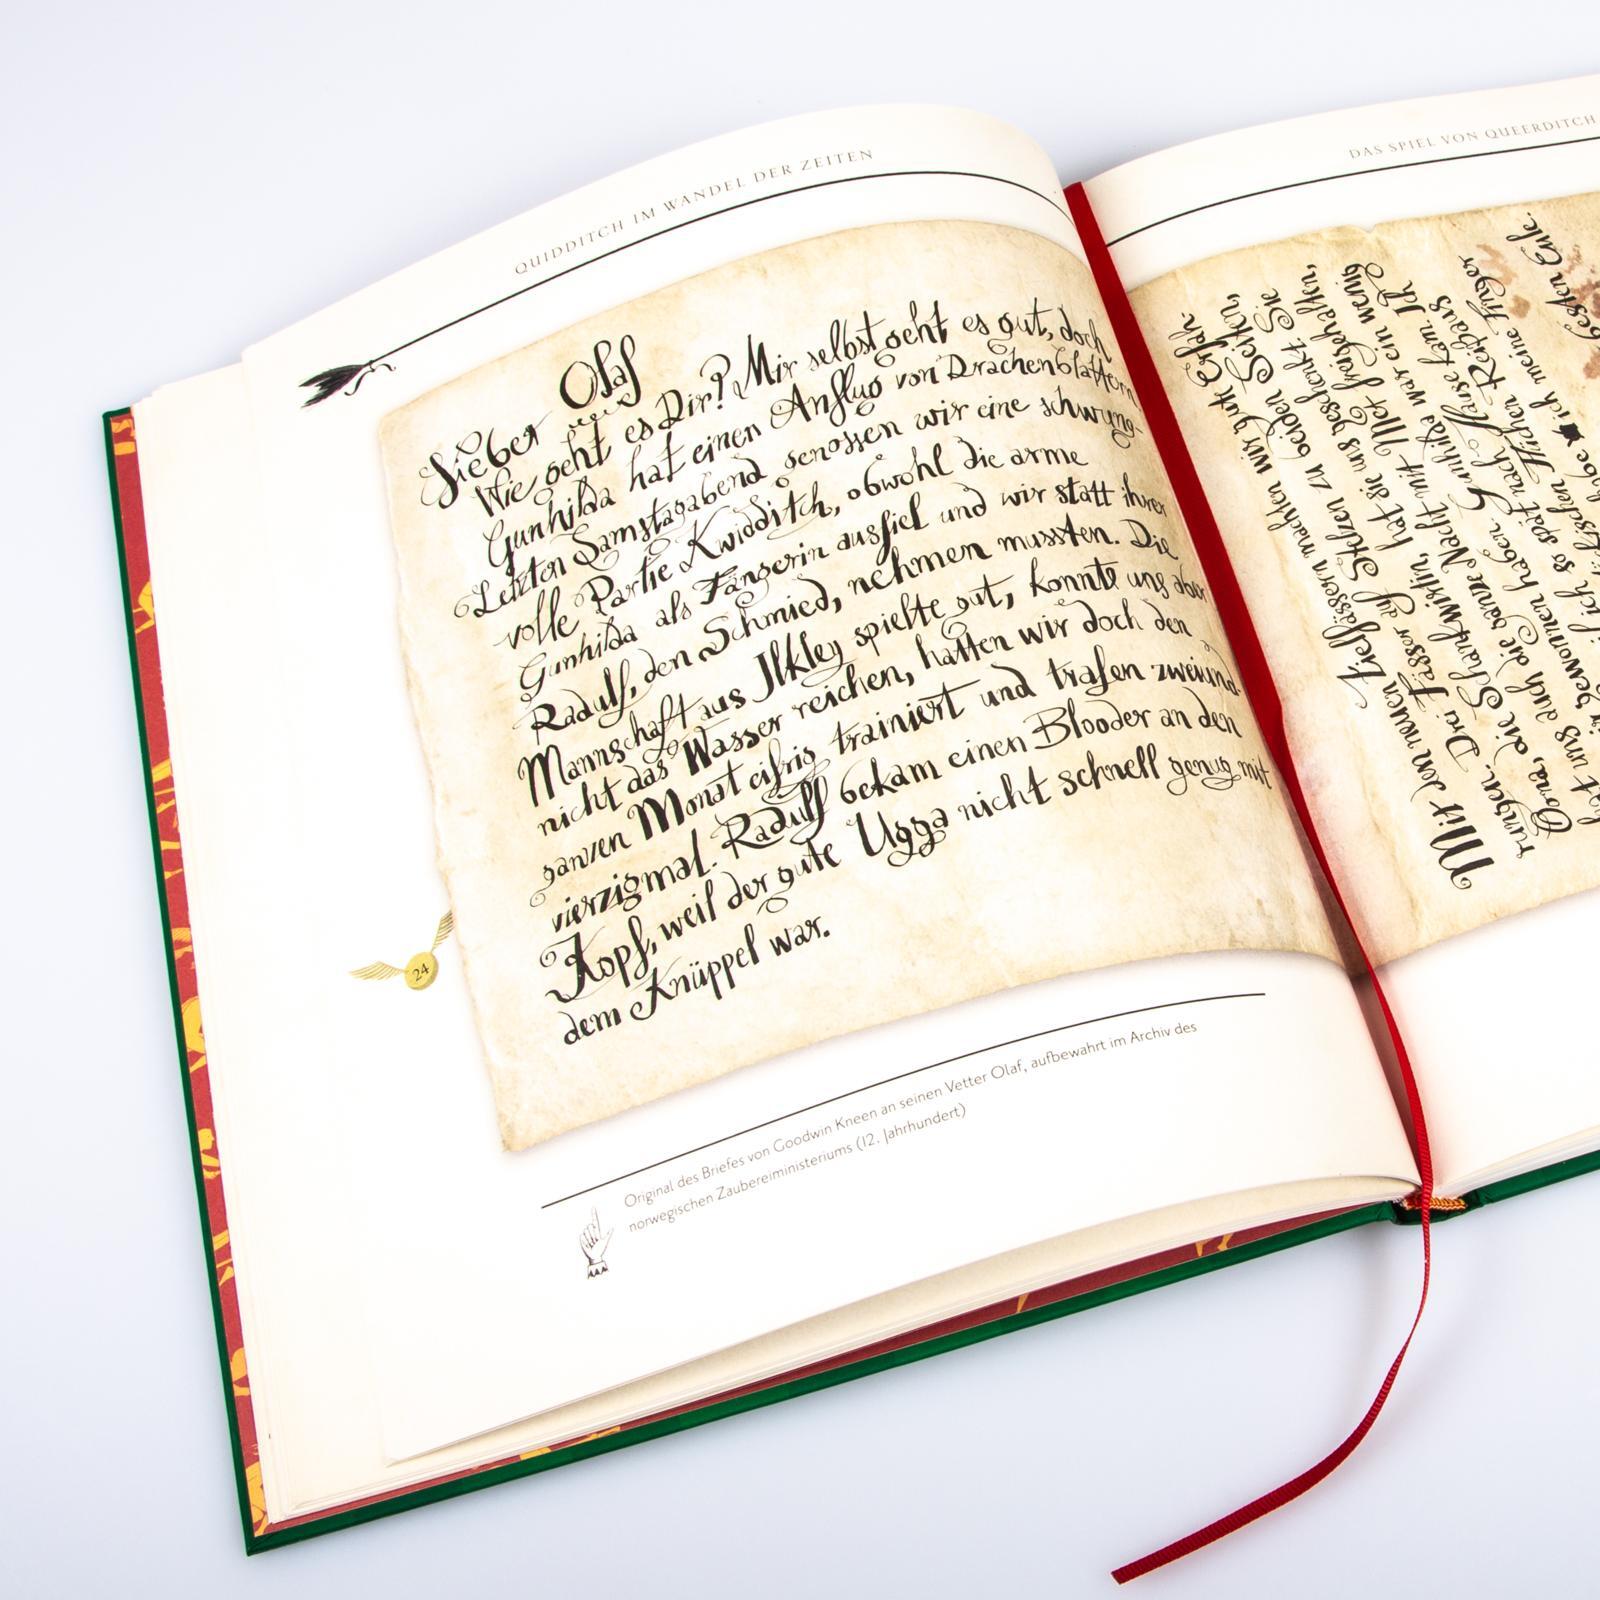 QUIDDITCH IM WANDEL DER ZEITEN
Lieber Olaf
Wie geht es Dir? Mir selbst geht es gut, doch
Gunhilda hat einen Anflug von Drachenblattern.
Letzten Samstagabend genossen wir eine schwung-
volle Partie Kwidditch, obwohl die arme
Gunhilda als Fängerin ausfiel und wir statt ihrer
Radulf, den Schmied, nehmen mussten. Die
Mannschaft aus Ilkley spielte gut, konnte uns aber
nicht das Wasser reichen, hatten wir doch den
ganzen Monat eifrig trainiert und trafen zweiund-
vierzigmal. Radulf bekam einen Blooder an den
Kopf, weil der gute Ugga nicht schnell genug mit
dem Knüppel war.
24
Original des Briefes von Goodwin Kneen an seinen Vetter Olaf, aufbewahrt im Archiv des
norwegischen Zaubereiministeriums (12. Jahrhundert)
DAS SPIEL VON QUEERDITCH
Mit den neuen Zielfässern machten wir gute Erfah-
rungen. Drei Fässer auf Stelzen zu beiden Seiten,
Oona, die Schankwirtin, hat sie uns geschenkt. Sie
hat uns auch die ganze Nacht mit Met freigehalten,
wir gewonnen haben. Gunhilda war ein wenig
weil ich so spät nach Hause kam. Ich
Flüchen Reißaus
habe ich meine Finger
besten Eule.